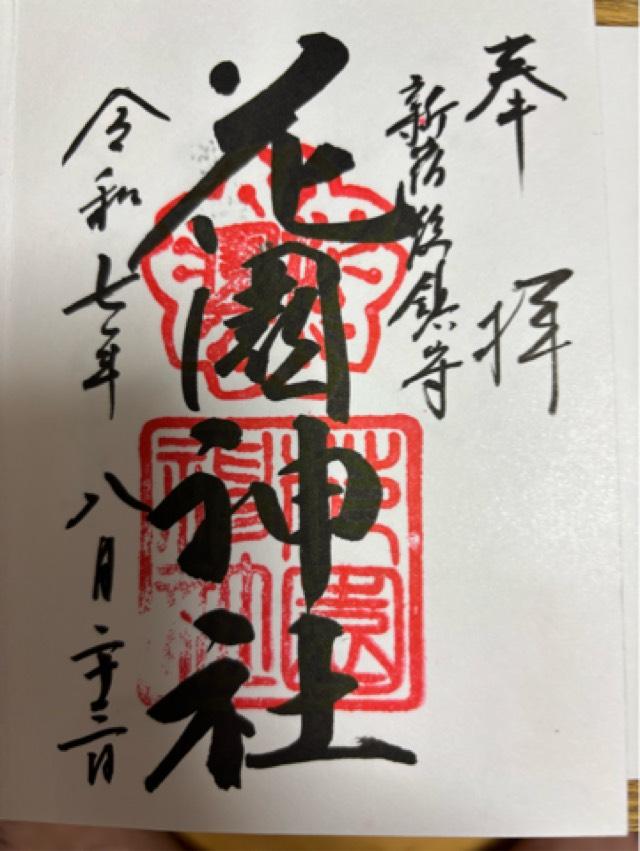 奉拝
新宿総鎮守
花園神社
花園神社
令和七年 八月二十三日